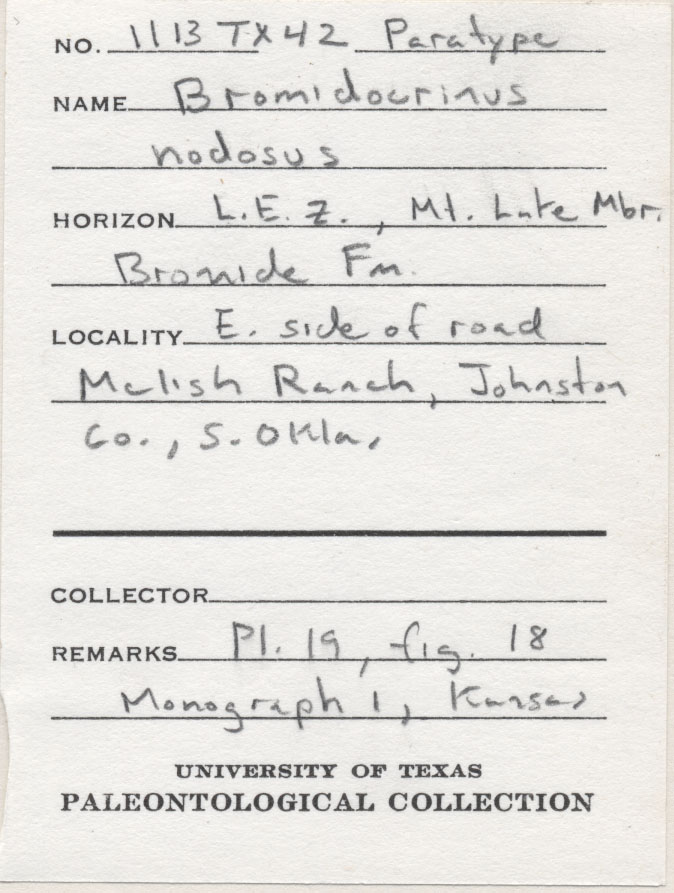 NO. 1113 TX42 Paratype
NAME Bromidocrinus
nodosus
HORIZON L.E.Z., Mt. Lake Mbr.
Bromide Fm.
LOCALITY E. side of road
Mclish Ranch, Johnston
Co., S. Okla.
COLLECTOR
REMARKS Pl. 19, fig. 18
Monograph 1, Kansas
UNIVERSITY OF TEXAS
PALEONTOLOGICAL COLLECTION